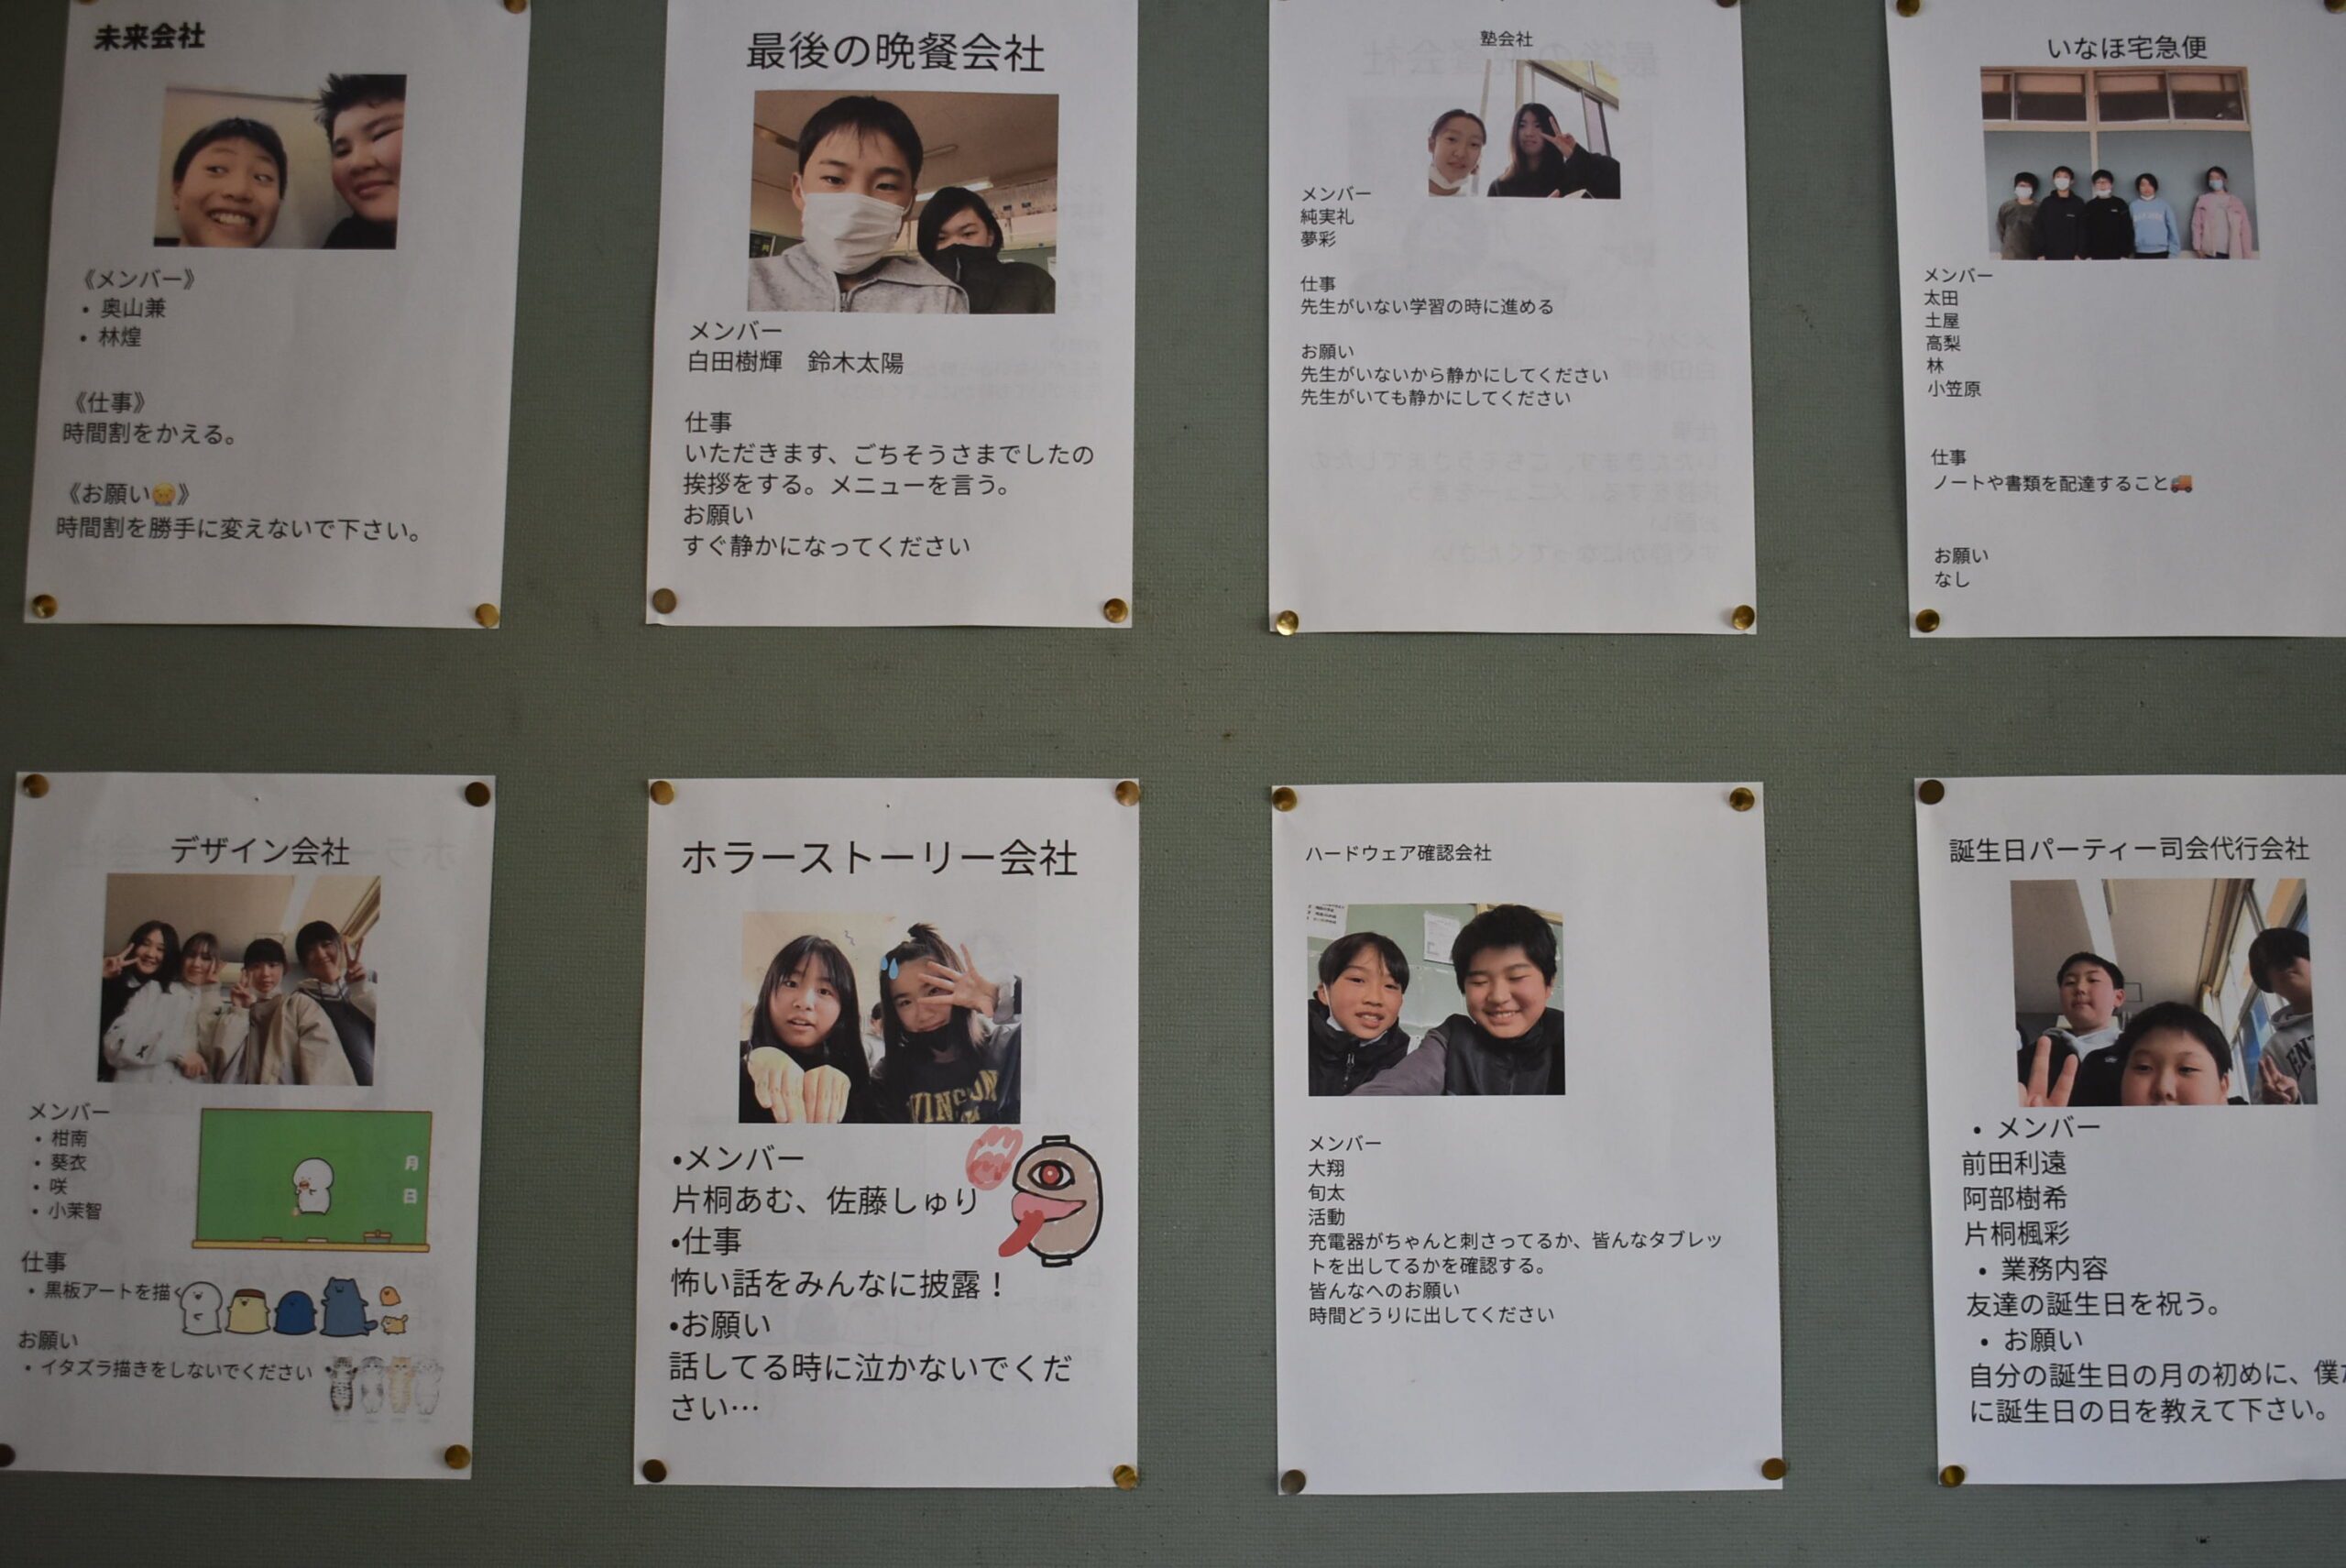 未来会社
《メンバー》
・奥山兼
・林煌
《仕事》
時間割をかえる。
《お願い🥺》
時間割を勝手に変えないで下さい。
最後の晩餐会社
メンバー
白田樹輝　鈴木太陽
仕事
いただきます、ごちそうさまでしたの
挨拶をする。メニューを言う。
お願い
すぐ静かになってください
塾会社
メンバー
純実礼
夢彩
仕事
先生がいない学習の時に進める
お願い
先生がいないから静かにしてください
先生がいても静かにしてください
いなほ宅急便
メンバー
太田
土屋
高梨
林
小笠原
仕事
ノートや書類を配達すること🚚
お願い
なし
デザイン会社
メンバー
・柑南
・葵衣
・咲
・小茉智
月
日
仕事
・黒板アートを描く
お願い
・イタズラ描きをしないでください
ホラーストーリー会社
•メンバー
片桐あむ、佐藤しゅり
•仕事
怖い話をみんなに披露！
•お願い
話してる時に泣かないでくだ
さい…
ハードウェア確認会社
メンバー
大翔
旬太
活動
充電器がちゃんと刺さってるか、皆んなタブレッ
トを出してるかを確認する。
皆んなへのお願い
時間どうりに出してください
誕生日パーティー司会代行会社
・メンバー
前田利遠
阿部樹希
片桐楓彩
・業務内容
友達の誕生日を祝う。
・お願い
自分の誕生日の月の初めに、僕
に誕生日の日を教えて下さい。